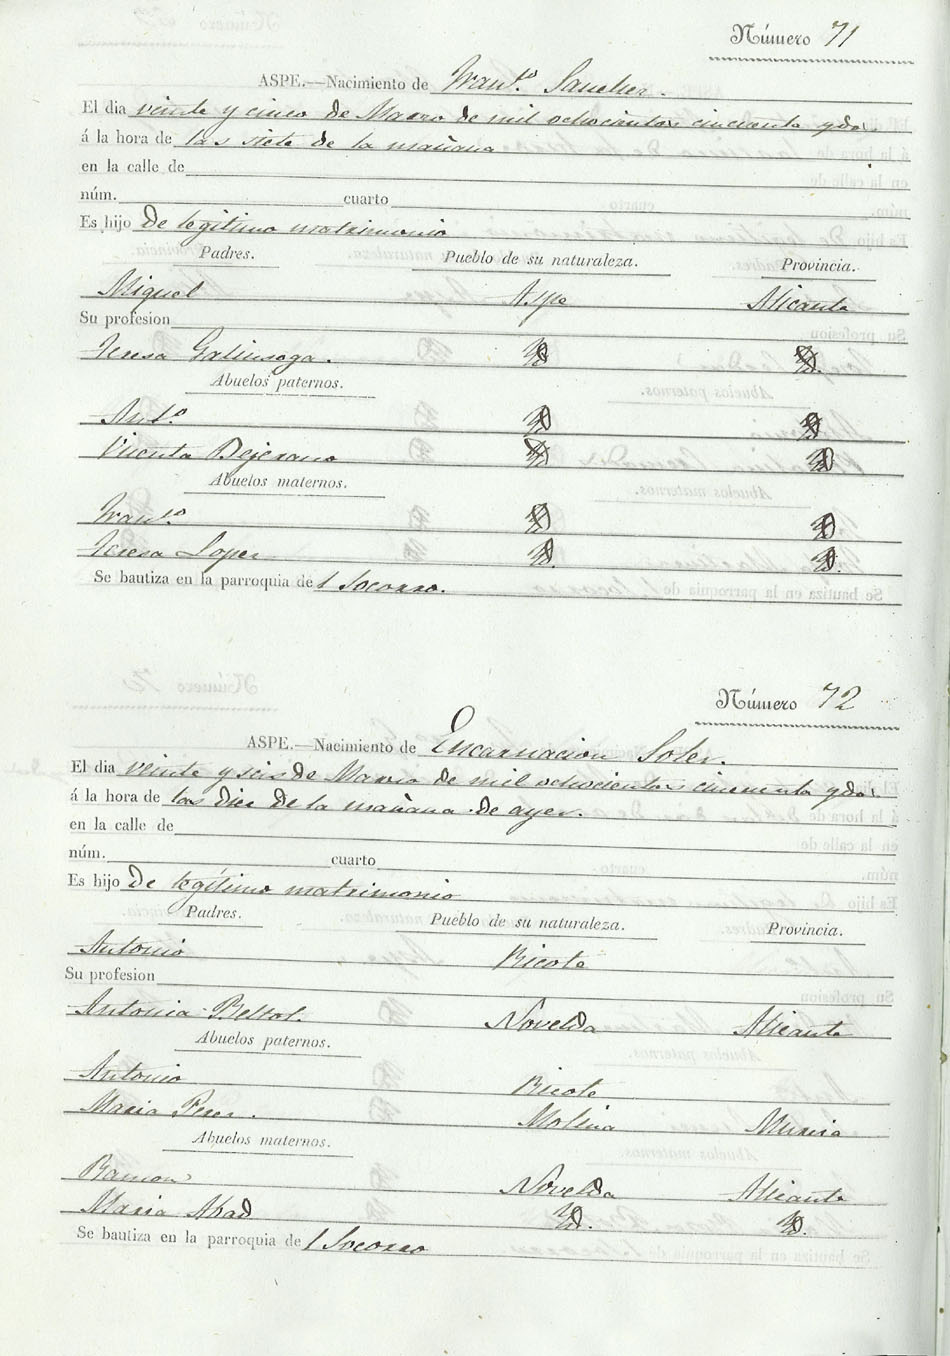 Número 71
ASPE.—Nacimiento de Franco. Sanchez.
El dia veinte y cinco de Marzo de mil ochocientos cincuenta y dos.
á la hora de las siete de la mañana
en la calle de
núm. cuarto
Es hijo de legitimo matrimonio
Padres. Pueblo de su naturaleza. Provincia.
Miguel Aspe Alicante
Su profesion
Teresa Galinsoga. Yd Yd.
Abuelos paternos.
Anto. Yd Yd
Vicenta Bejerano Yd Yd
Abuelos maternos.
Franco. Yd Yd
Teresa Lopez Yd. Yd.
Se bautiza en la parroquia del Socorro.
Número 72
ASPE.—Nacimiento de Encarnacion Soler.
El dia veinte y seis de Marzo de mil ochocientos cincuenta y dos.
á la hora de las diez de la mañana de ayer.
en la calle de
núm. cuarto
Es hijo de legítimo matrimonio
Padres. Pueblo de su naturaleza. Provincia.
Antonio Ricote
Su profesion
Antonia Novelda Alicante
Abuelos paternos.
Antonio Ricote
Maria Perez. Molina Murcia
Abuelos maternos.
Ramon Novelda Alicante
Maria Abad Yd. Yd.
Se bautiza en la parroquia del Socorro